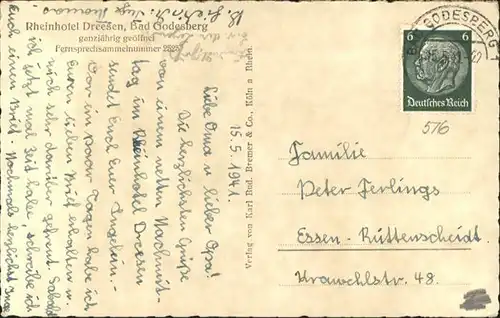 Rheinhotel Dreesen, Bad Godesberg
ganzjährig geöffnet
Fernsprechsammelnummer 2325
15.5.1941.
Liebe Oma u. lieber Opa!
Die herzlichsten Grüße
von einem netten Nachmit-
tag im Rheinhotel Dreesen
sendet Euch Euer Ingelein.-
Vor ein paar Tagen habe ich
Euren lieben Brief erhalten u.
mich sehr darüber gefreut. Sobald
ich jetzt mal Zeit habe, schreibe ich
Euch ein Brief. Nochmals herzlichst Inge
Verlag von Karl Rud. Bremer & Co., Köln a Rhein.
GODESBERG 1
6 6
Deutsches Reich
576
Familie
Peter Ferlings
Essen-Rüttenscheidt.
Krawehlstr. 48.